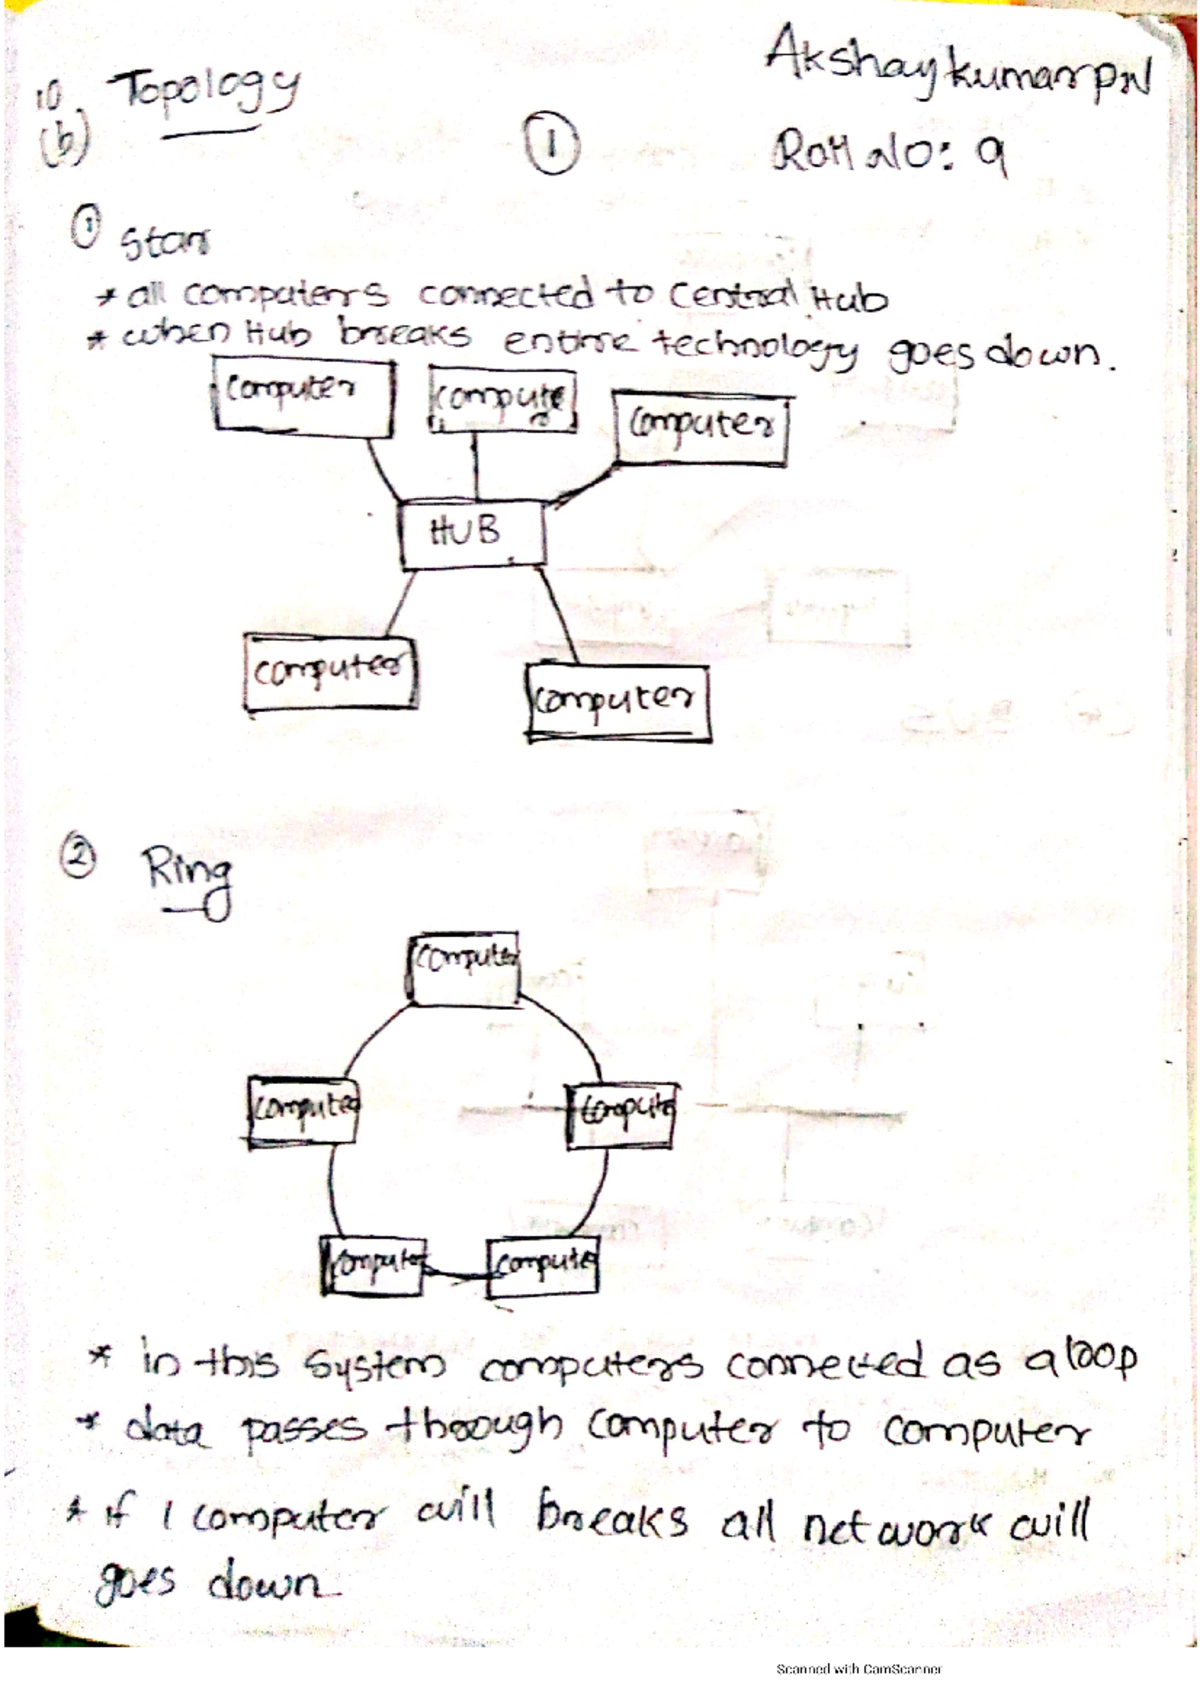 10. Topology
Akshaykumar PN
(b)
1
Roll No: 9
1 Star
* all computers connected to Central Hub
* when Hub breaks entire technology goes down.
Computer
Computer
Computer
HUB
computer
computer
2 Ring
Computer
Computer
Computer
Computer
Computer
* in this system computers connected as a loop
* data passes through Computer to computer
* if 1 computer will breaks all network will
goes down
Scanned with CamScanner